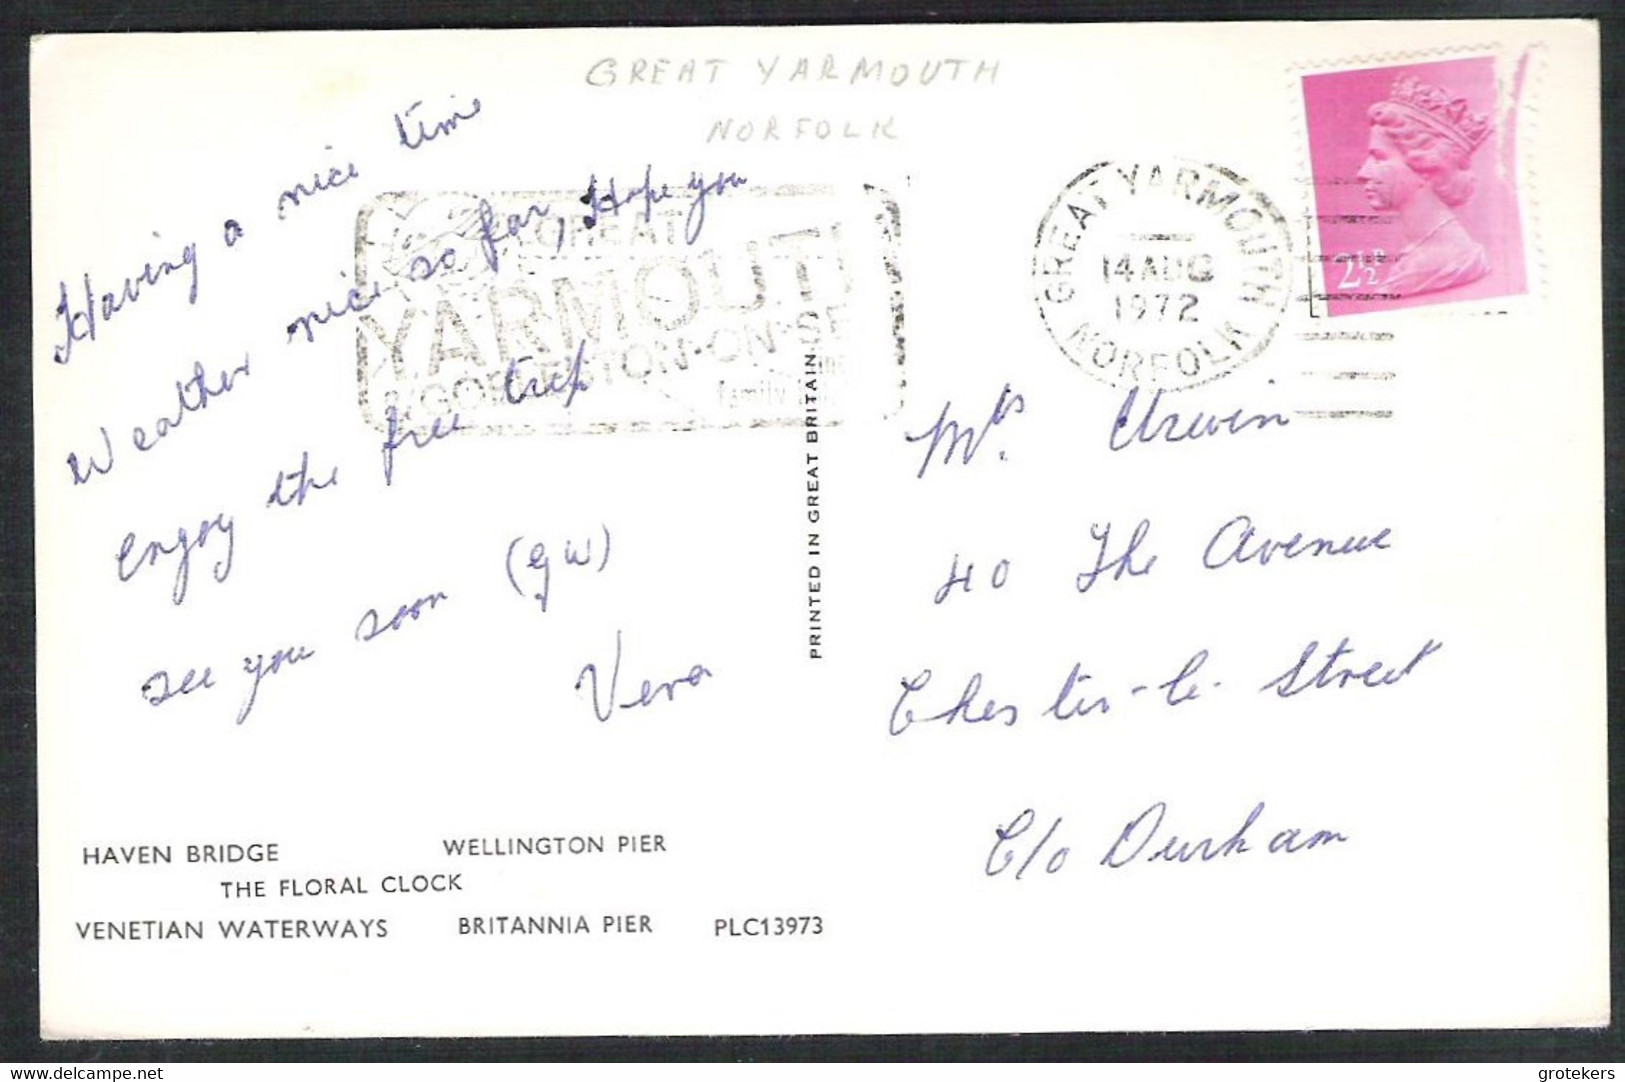 GREAT YARMOUTH
NORFOLK
Having a nice time
Weather nice so far, Hope you
enjoy the free trip
see you soon (GW)
Vera
GREAT
YARMOUTH
& GORLESTON-ON-SE
family
GREAT YARMOUTH
14 AUG
1972
NORFOLK
2½P
PRINTED IN GREAT BRITAIN
Mrs. Urwin
40 The Avenue
Chester-le-Street
C/o Durham
HAVEN BRIDGE WELLINGTON PIER
THE FLORAL CLOCK
VENETIAN WATERWAYS BRITANNIA PIER PLC13973
www.delcampe.net
grotekers